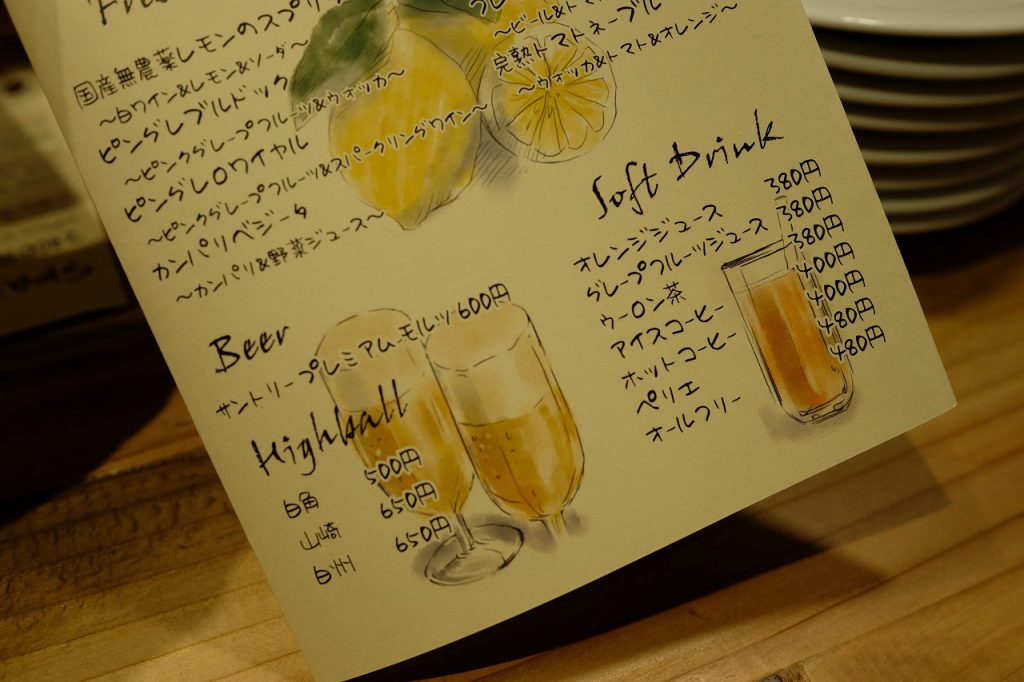 国産無農薬レモンのスプリ
~白ワイン&レモン&ソーダ~
ピングレブルドック
~ピンクグレープフルーツ&ウォッカ~
ピングレロワイヤル
~ピンクグレープフルーツ&スパークリングワイン~
カンパリベジータ
~カンパリ&野菜ジュース~
~ビール&トマ
完熟トマトネーブル
~ウォッカ&トマト&オレンジ~
Beer
サントリープレミアムモルツ 600円
Highball
白角 500円
山崎 650円
白州 650円
Soft Drink
オレンジジュース 380円
グレープフルーツジュース 380円
ウーロン茶 380円
アイスコーヒー 400円
ホットコーヒー 400円
ペリエ 480円
オールフリー 480円